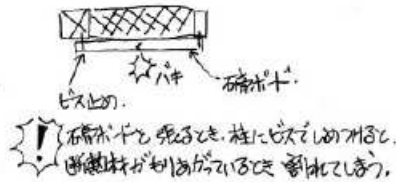 バキ
石膏ボード.
ビス止め.
! 石膏ボードを張るとき、柱にビスでしめつけると、
断熱材がもりあがっているとき 割れてしまう。